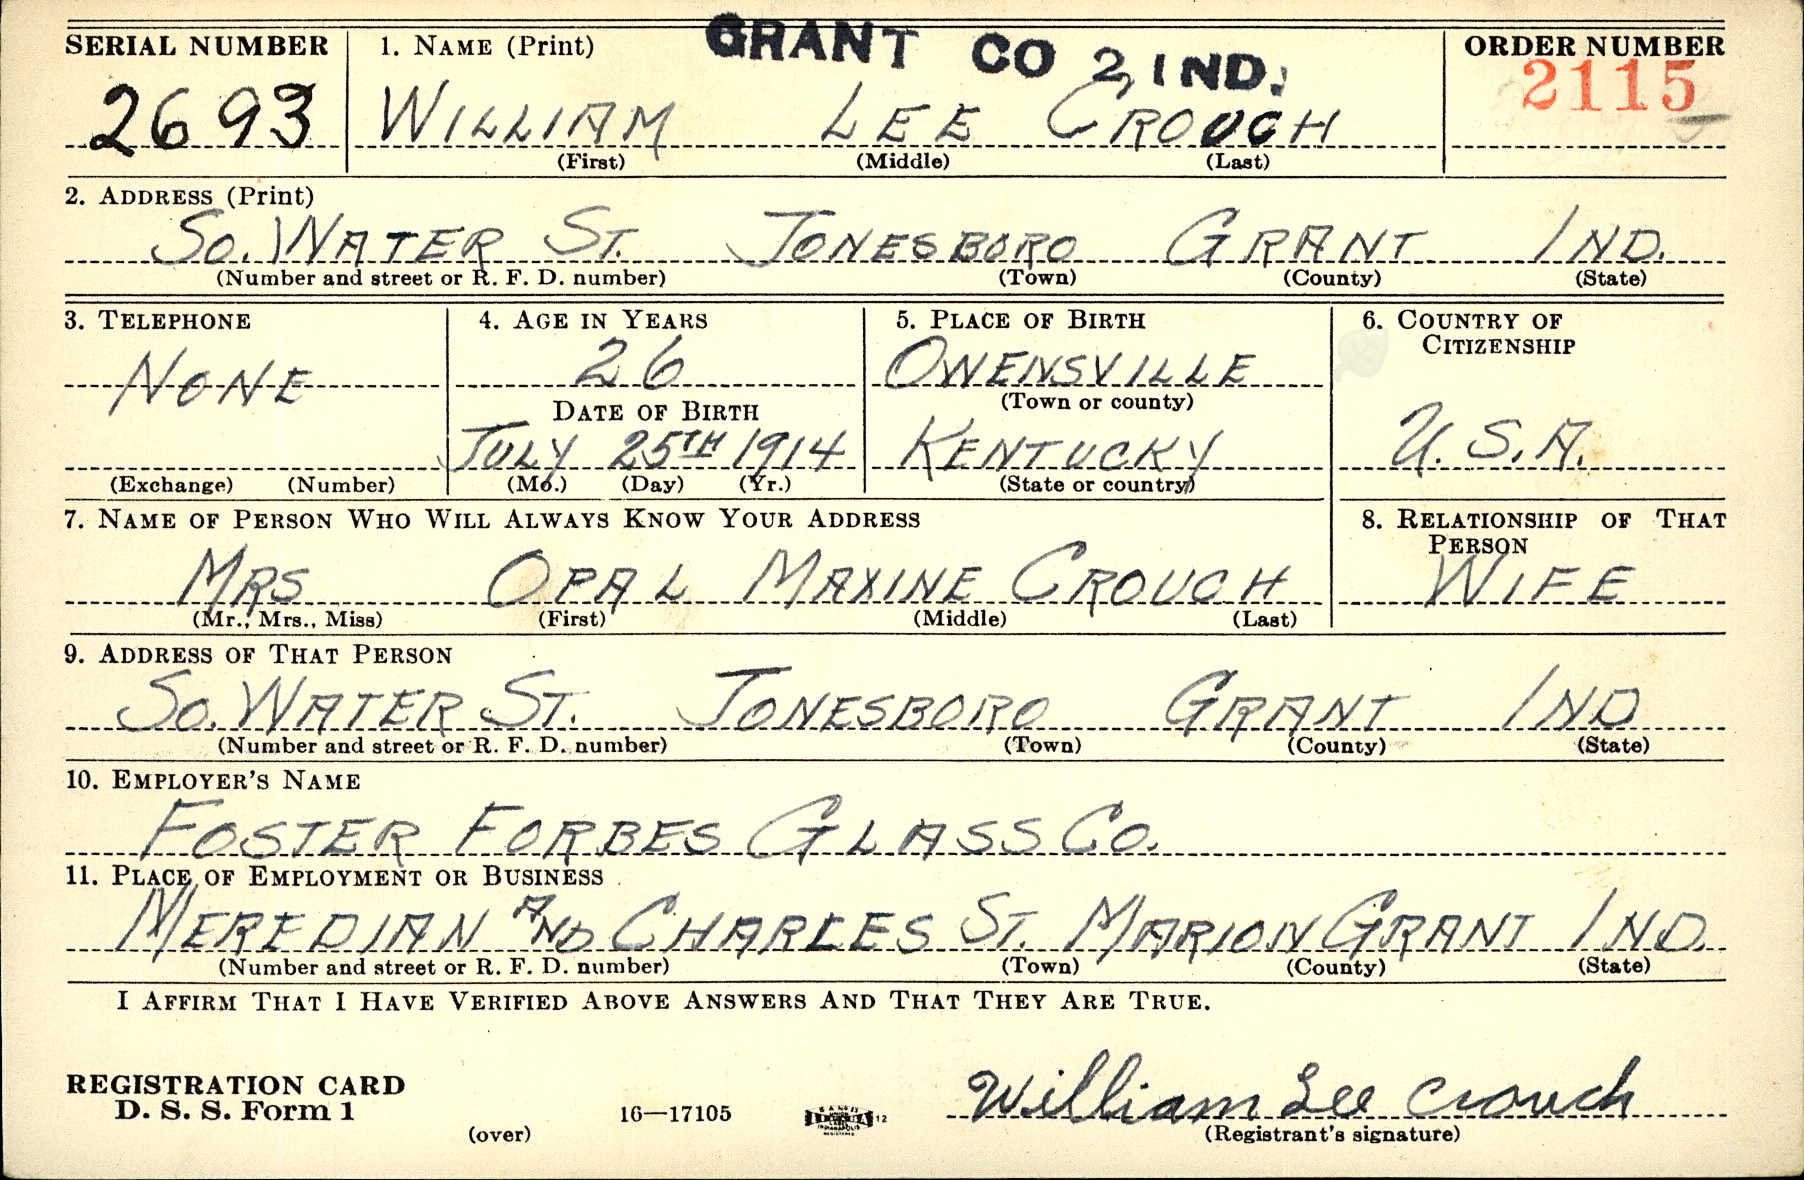 GRANT CO 2, IND.
SERIAL NUMBER 1. NAME (Print) ORDER NUMBER
2693 WILLIAM LEE CROUCH 2115
(First) (Middle) (Last)
2. ADDRESS (Print)
SO. WATER ST. JONESBORO GRANT IND.
(Number and street or R. F. D. number) (Town) (County) (State)
3. TELEPHONE 4. AGE IN YEARS 5. PLACE OF BIRTH 6. COUNTRY OF CITIZENSHIP
NONE 26 OWENSVILLE
(Town or county)
DATE OF BIRTH
JULY 25TH 1914 KENTUCKY U. S. A.
(Exchange) (Number) (Mo.) (Day) (Yr.) (State or country)
7. NAME OF PERSON WHO WILL ALWAYS KNOW YOUR ADDRESS 8. RELATIONSHIP OF THAT PERSON
MRS OPAL MAXINE CROUCH WIFE
(Mr., Mrs., Miss) (First) (Middle) (Last)
9. ADDRESS OF THAT PERSON
SO. WATER ST. JONESBORO GRANT IND
(Number and street or R. F. D. number) (Town) (County) (State)
10. EMPLOYER'S NAME
FOSTER FORBES GLASS CO.
11. PLACE OF EMPLOYMENT OR BUSINESS
MEREDIAN AND CHARLES ST. MARION GRANT IND.
(Number and street or R. F. D. number) (Town) (County) (State)
I AFFIRM THAT I HAVE VERIFIED ABOVE ANSWERS AND THAT THEY ARE TRUE.
REGISTRATION CARD
D. S. S. Form 1 16—17105 12 William Lee Crouch
(over) (Registrant's signature)